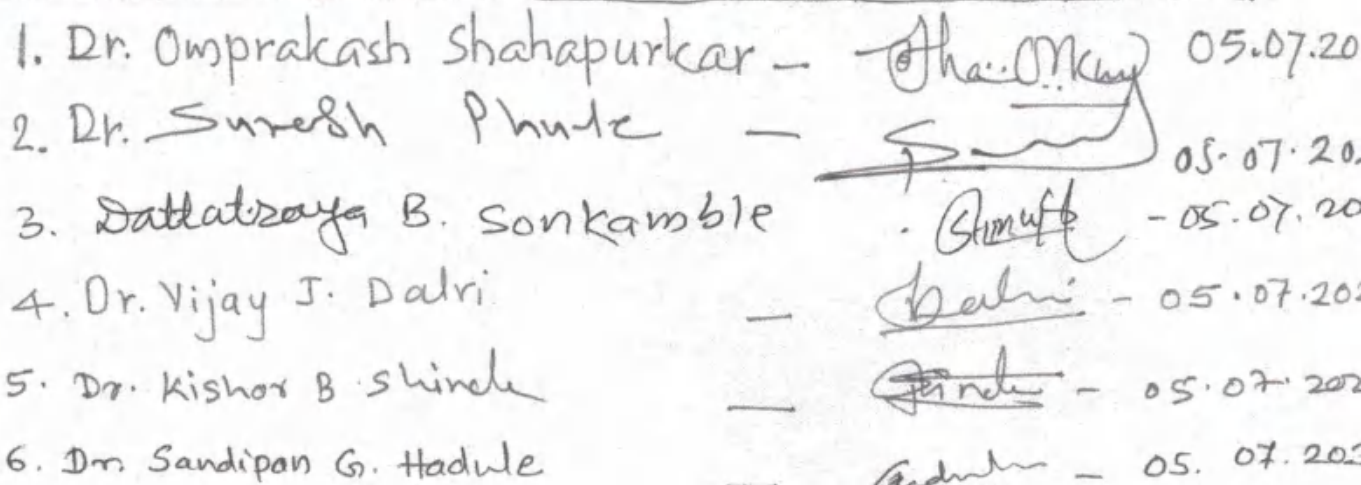 1. Dr. Omprakash Shahapurkar - 05.07.20
2. Dr. Suresh Phule - 05.07.20
3. Dattatraya B. Sonkamble - 05.07.20
4. Dr. Vijay J. Dalvi - Dalvi - 05.07.202
5. Dr. Kishor B Shinde - Shinde - 05.07.202
6. Dr. Sandipan G. Hadule - 05.07.202